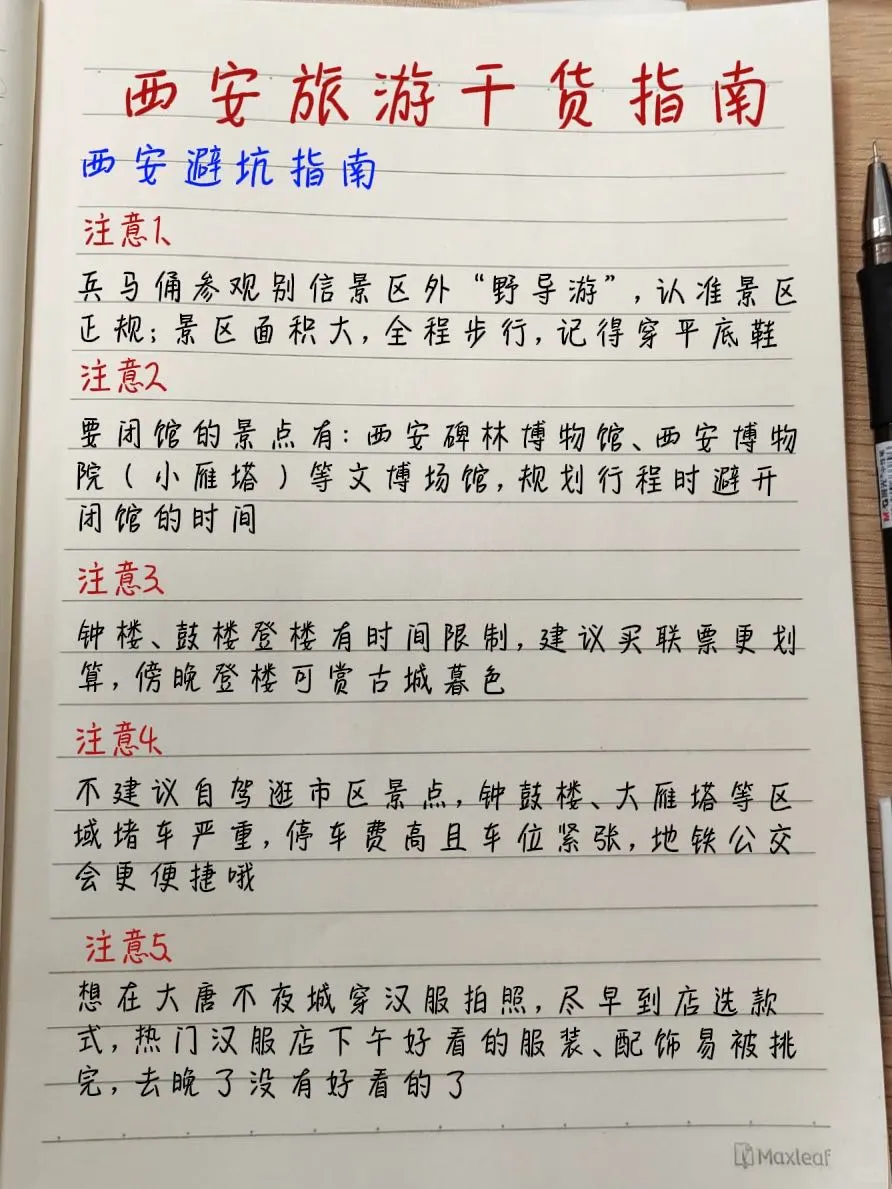 西安旅游干货指南
西安避坑指南
注意1、
兵马俑参观别信景区外“野导游”,认准景区
正规;景区面积大,全程步行,记得穿平底鞋
注意2、
要闭馆的景点有:西安碑林博物馆、西安博物
院(小雁塔)等文博场馆,规划行程时避开
闭馆的时间
注意3、
钟楼、鼓楼登楼有时间限制,建议买联票更划
算,傍晚登楼可赏古城暮色
注意4、
不建议自驾逛市区景点,钟鼓楼、大雁塔等区
域堵车严重,停车费高且车位紧张,地铁公交
会更便捷哦
注意5、
想在大唐不夜城穿汉服拍照,尽早到店选款
式,热门汉服店下午好看的服装、配饰易被挑
完,去晚了没有好看的了
Maxleaf